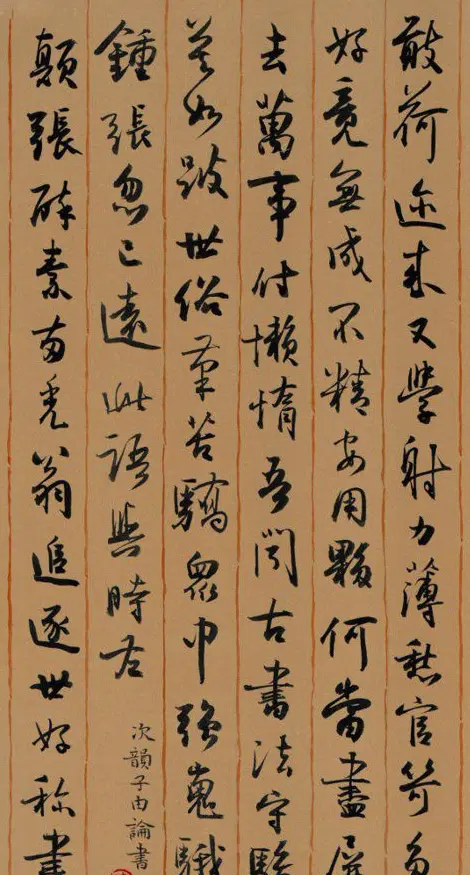 敢荷迩來又學射力薄愁官笴多
好竟無成不精安用夥何當盡屏
去萬事付懶惰吾聞古書法守駿
莫如跛世俗筆苦驕眾中強嵬騀
鍾張忽已遠此語與時左
次韻子由論書
顛張醉素兩禿翁追逐世好稱書